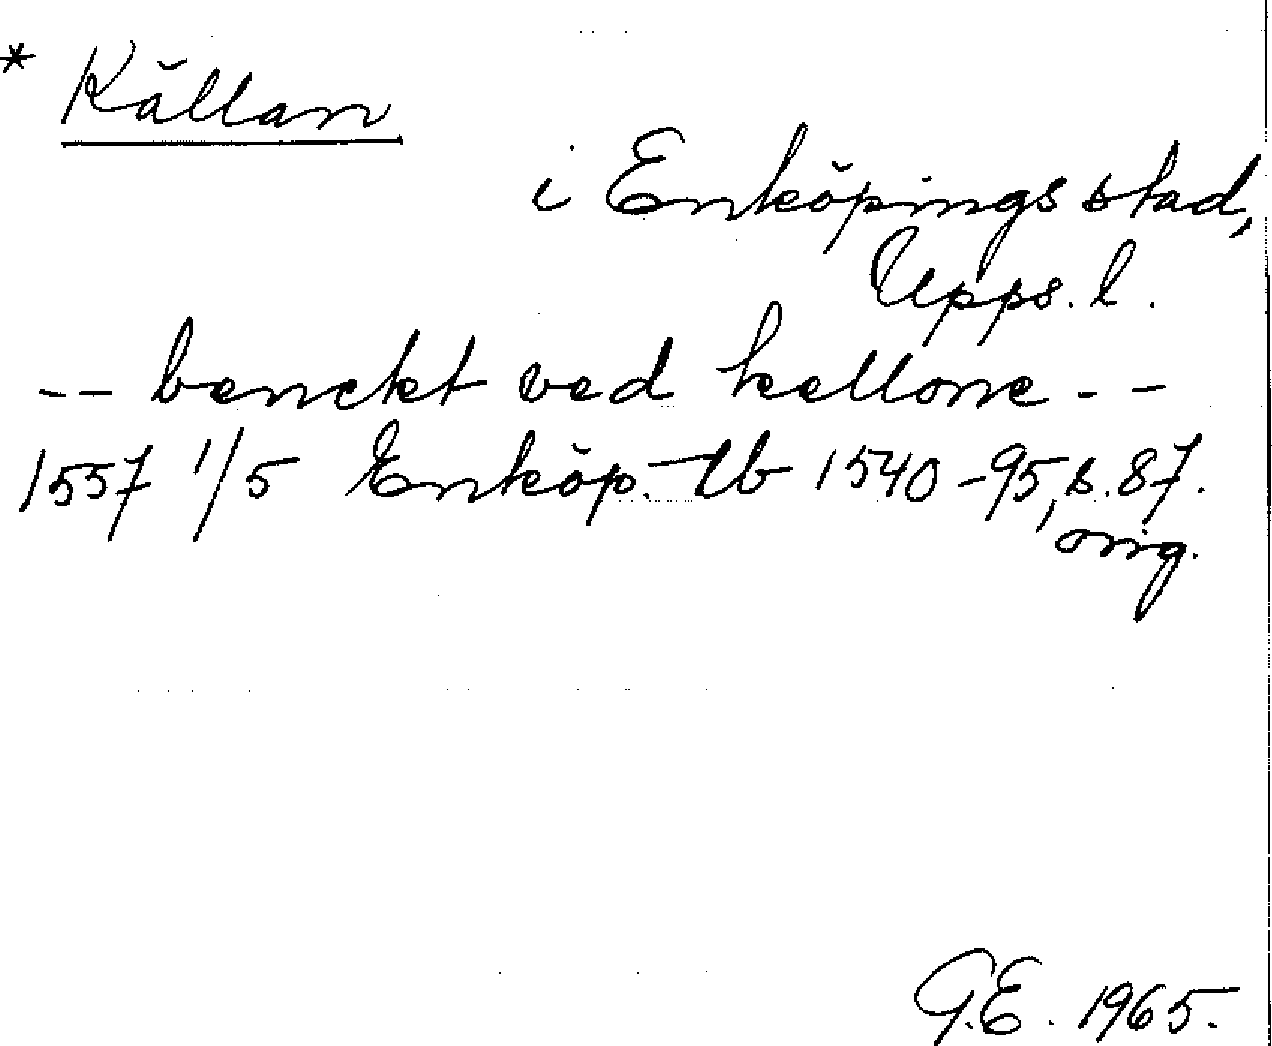 * Källan
i Enköpings stad,
Upps. l.
-- benckt ved kellone --
1557 1/5 Enköp. tb 1540-95, s. 87.
orig.
G.E. 1965.